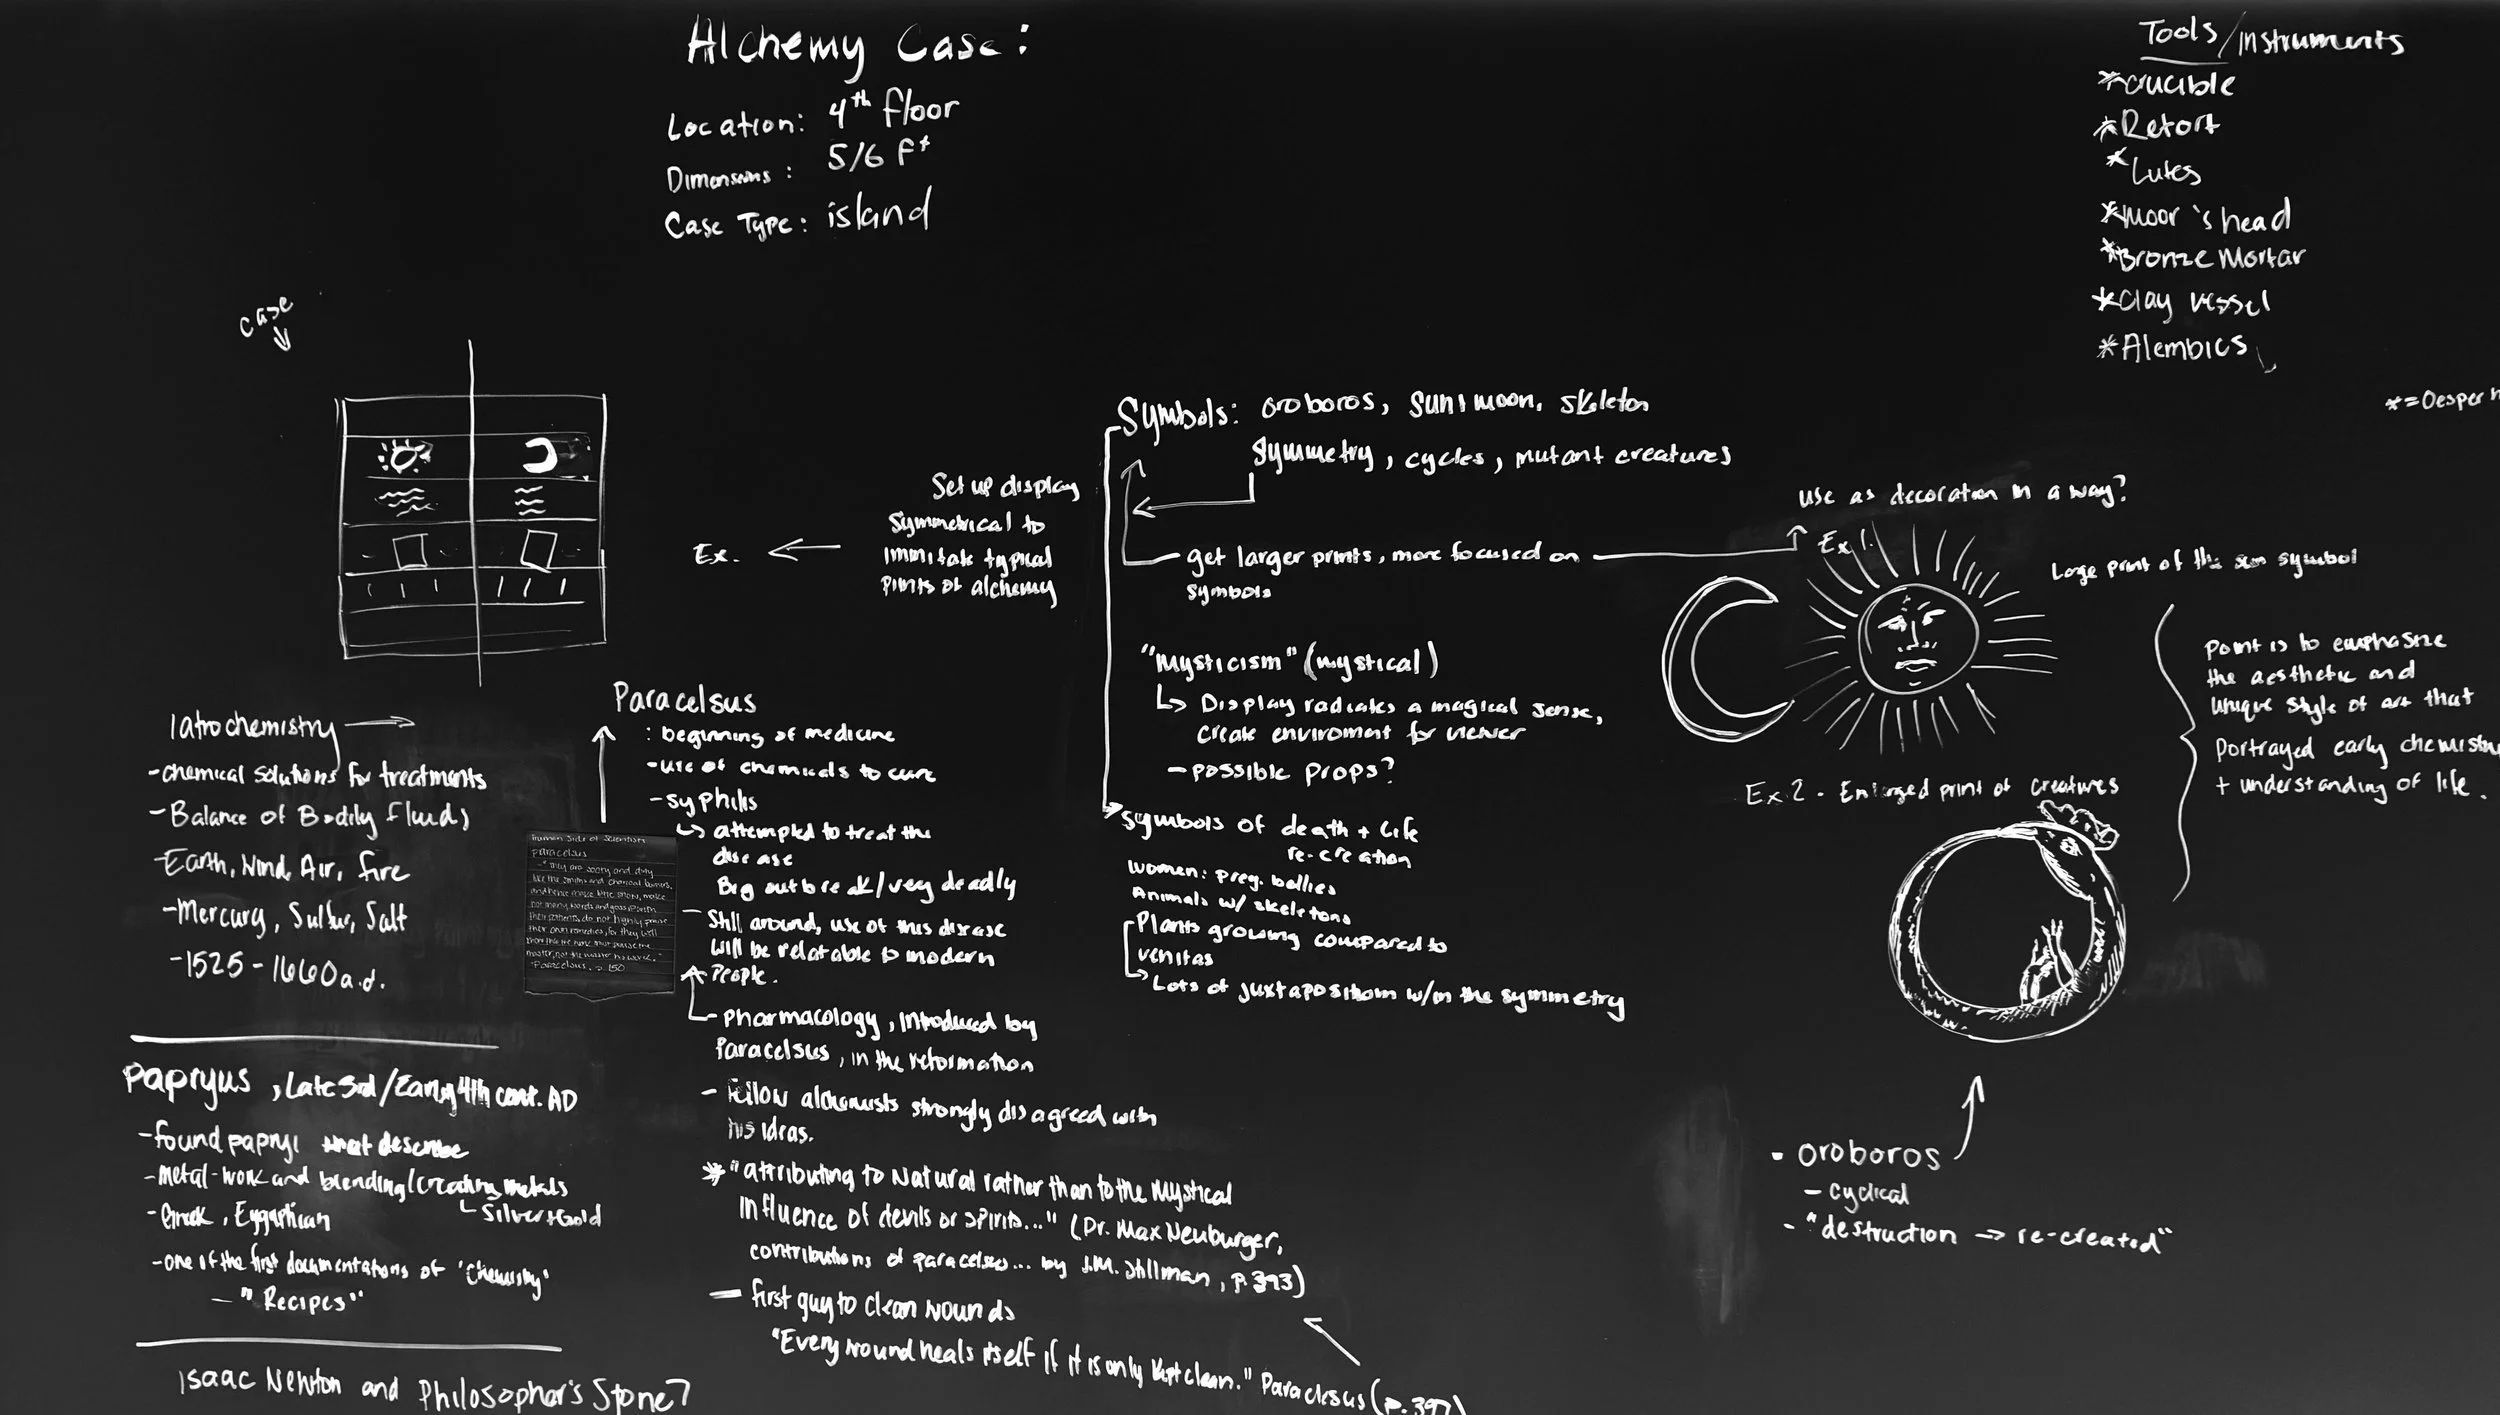 Alchemy Case:
Location: 4th floor
Dimensions: 5/6 Ft
Case Type: island
Tools/instruments
*crucible
*Retort
*Lutes
*moor's head
*Bronze Mortar
*Clay vessel
*Alembics
*=Oesper
case
Symbols: oroboros, sun/moon, skeleton
symmetry, cycles, mutant creatures
get larger prints, more focused on
symbols
use as decoration in a way?
Set up display
Symmetrical to
immitate typical
prints of alchemy
Ex.
Ex 1.
Large print of the sun symbol
Point is to emphasize
the aesthetic and
unique style of art that
portrayed early chemistry
+ understanding of life.
"mysticism" (mystical)
Display radiates a magical sense,
create enviroment for viewer
- possible props?
Ex 2 - Enlarged print of creatures
symbols of death + life
re-creation
women: preg. bellies
Animals w/ skeletons
Plants growing compared to
venitas
Lots of juxtaposition w/in the symmetry
• oroboros
- cyclical
- "destruction -> re-created"
Iatrochemistry
-chemical solutions for treatments
-Balance of Bodily Fluids
-Earth, Wind, Air, fire
-Mercury, Sulfur, Salt
-1525-1660 a.d.
Paracelsus
: beginning of medicine
-use of chemicals to cure
-syphilis
attempted to treat the
disease
Big outbreak/very deadly
- Still around, use of this disease
will be relatable to modern
People.
- Pharmacology, introduced by
Paracelsus, in the reformation
- fellow alchemists strongly disagreed with
his ideas.
* "attributing to Natural rather than to the Mystical
Influence of devils or spirits..." (Dr. Max Neuburger,
contributions of paracelsus... by J.M. Stillman, p.393)
- first guy to clean wounds
"Every wound heals itself if it is only kept clean." Paraclesus (p.397)
Human Side of Scientists
paracelsus
-"They are sooty and dirty
like the smiths and charcoal burners,
and hence make little show, make
not many words and gossip with
their patients, do not highly praise
their own remedies, for they well
know that the work must praise the
master, not the master his work."
-Paracelsus, p. 150
Papryus, Late 3rd/Early 4th cent. AD
-found papryi that describe
-metal-work and blending/creating metals
Silver+Gold
-Greek, Eygaptican
-one of the first documentations of 'Chemistry'
- "Recipes"
Isaac Newton and Philosopher's Stone?